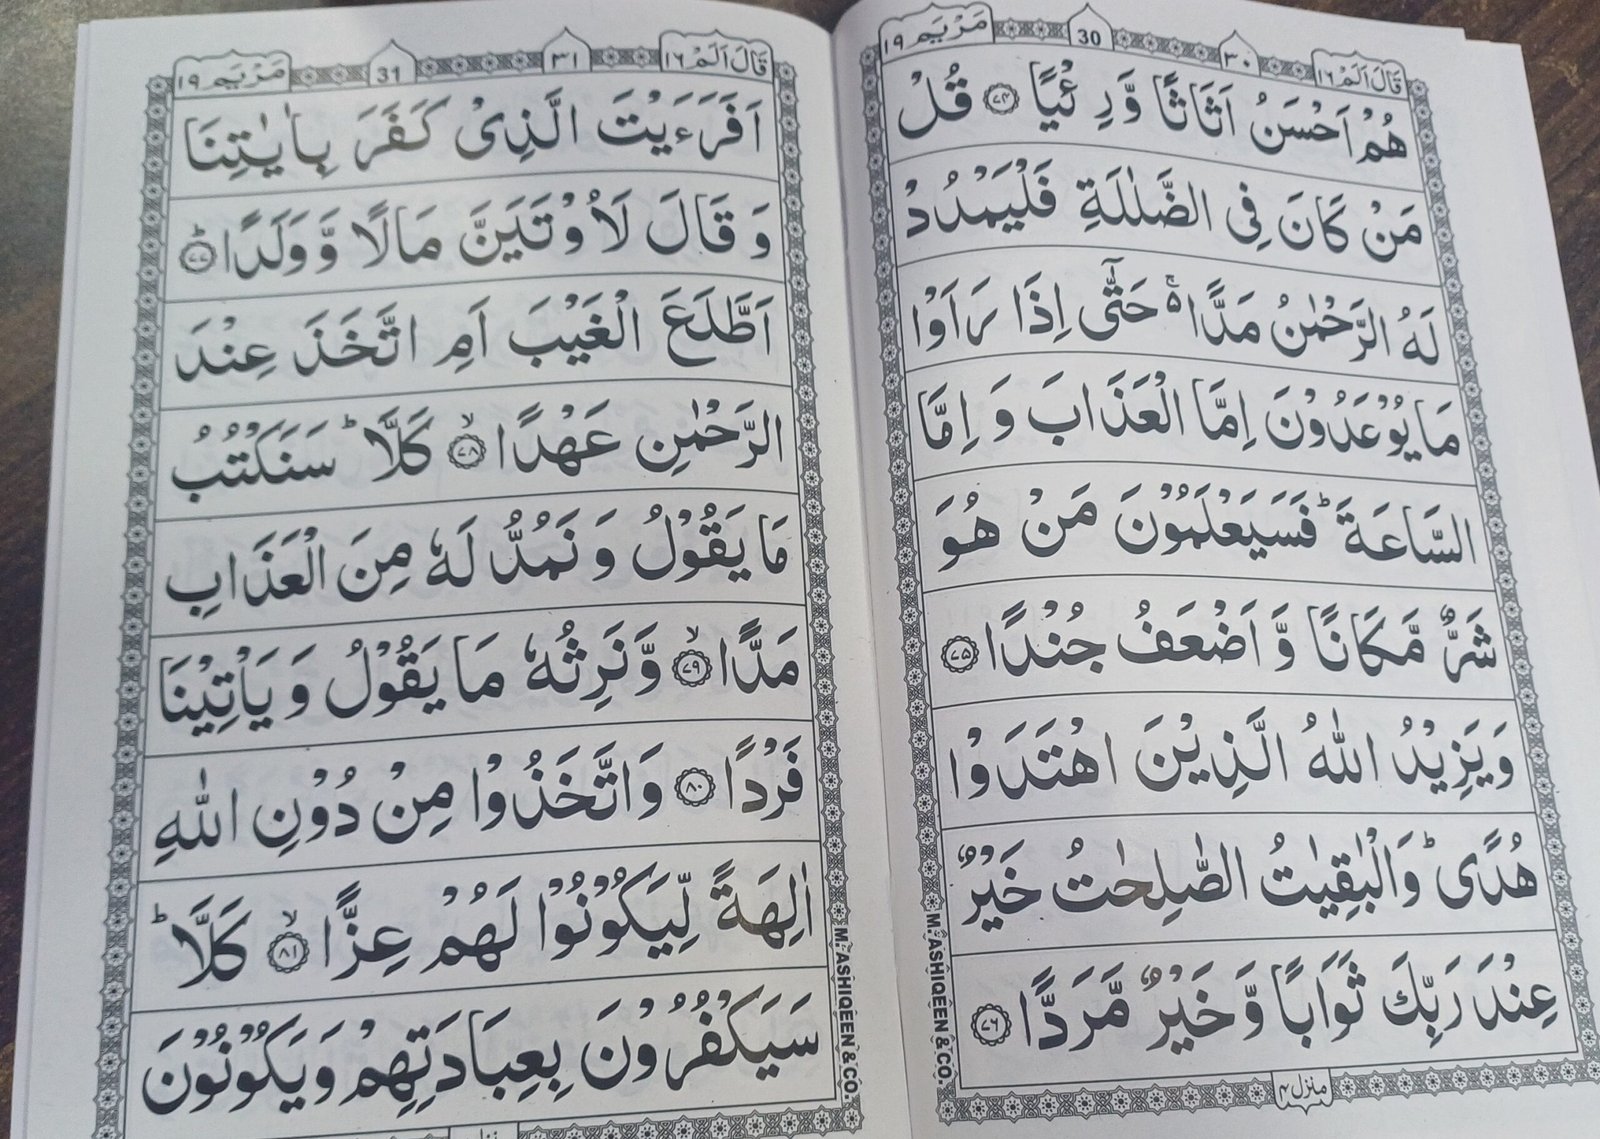 قَالَ اَلَمْ ١٦
٣٠
30
مَرْيَم ١٩
هُمْ اَحْسَنُ اَثَاثًا وَّ رِءْيًا ﴿٧٤﴾ قُلْ
مَنْ كَانَ فِى الضَّلٰلَةِ فَلْيَمْدُدْ
لَهُ الرَّحْمٰنُ مَدًّا ۚ۬ حَتّٰٓى اِذَا رَاَوْا
مَا يُوْعَدُوْنَ اِمَّا الْعَذَابَ وَ اِمَّا
السَّاعَةَ ؕ فَسَيَعْلَمُوْنَ مَنْ هُوَ
شَرٌّ مَّكَانًا وَّ اَضْعَفُ جُنْدًا ﴿٧٥﴾
وَ يَزِيْدُ اللّٰهُ الَّذِيْنَ اهْتَدَوْا
هُدًى ؕ وَالْبٰقِيٰتُ الصّٰلِحٰتُ خَيْرٌ
عِنْدَ رَبِّكَ ثَوَابًا وَّ خَيْرٌ مَّرَدًّا ﴿٧٦﴾
منزل ٤
M. ASHIQEEN & CO.
قَالَ اَلَمْ ١٦
٣١
31
مَرْيَم ١٩
اَفَرَءَيْتَ الَّذِىْ كَفَرَ بِاٰيٰتِنَا
وَ قَالَ لَاُوْتَيَنَّ مَالًا وَّ وَلَدًا ؕ﴿٧٧﴾
اَطَّلَعَ الْغَيْبَ اَمِ اتَّخَذَ عِنْدَ
الرَّحْمٰنِ عَهْدًا ۙ﴿٧٨﴾ كَلَّا ؕ سَنَكْتُبُ
مَا يَقُوْلُ وَ نَمُدُّ لَهٗ مِنَ الْعَذَابِ
مَدًّا ۙ﴿٧٩﴾ وَّ نَرِثُهٗ مَا يَقُوْلُ وَ يَاْتِيْنَا
فَرْدًا ﴿٨٠﴾ وَ اتَّخَذُوْا مِنْ دُوْنِ اللّٰهِ
اٰلِهَةً لِّيَكُوْنُوْا لَهُمْ عِزًّا ۙ﴿٨١﴾ كَلَّا ؕ
سَيَكْفُرُوْنَ بِعِبَادَتِهِمْ وَ يَكُوْنُوْنَ
M. ASHIQEEN & CO.